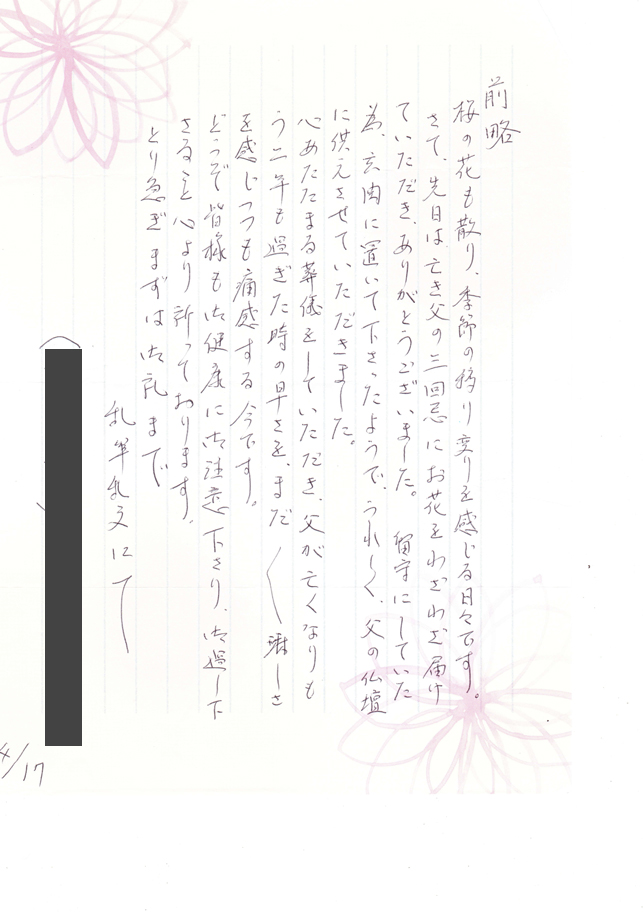 前略
桜の花も散り、季節の移り変りを感じる日々です。
さて、先日は、亡き父の三回忌にお花をわざわざ届け
ていただき、ありがとうございました。留守にしていた
為、玄関に置いて下さったようで、うれしく、父の仏壇
に供えさせていただきました。
心あたたまる葬儀をしていただき、父が亡くなりも
う二年も過ぎた時の早さを、まだ〱淋しさ
を感じつつも痛感する今です。
どうぞ皆様も御健康に御注意下さり、御過し下
さること心より祈っております。
とり急ぎまずは御礼まで
乱筆乱文にて
4/17